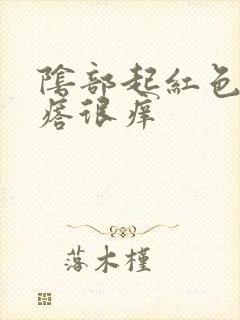 陰部起紅色
痞很痒
落木槿